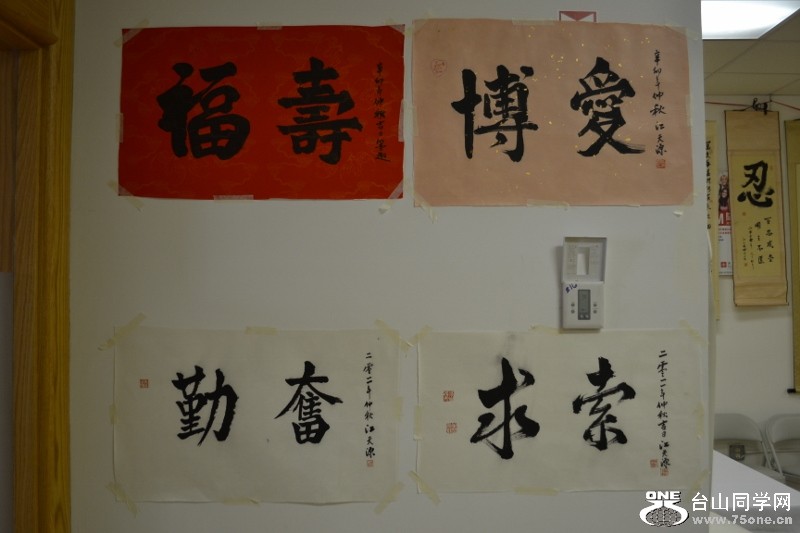 壽福
辛卯年仲秋吉日
愛博
辛卯年仲秋 江天源
忍
奮勤
二零一一年仲秋 江天源
索求
二零一一年仲秋吉日 江天源
ONE 台山同学网
www.75one.cn